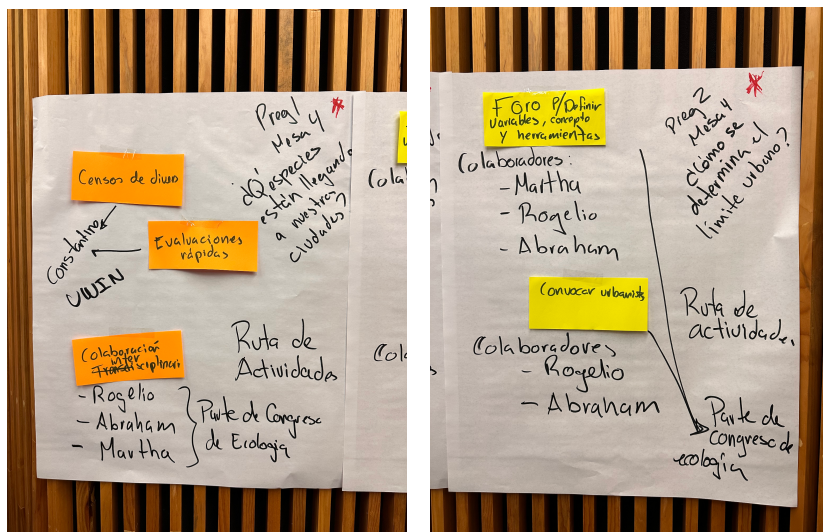 Preg1
Mesa 4
¿Qé especies
están llegando
a nuestras
ciudades?
Censos de
Constantino
Evaluaciones
rápidas
UWIN
Colaboración
inter
Ruta de
Actividades
- Rogelio
- Abraham
- Martha
Parte de Congreso
de Ecología
Cola
Col
Foro P/Definir
variables, concepto
y herramientas
Preg2
Mesa 4
¿Cómo se
determina el
límite urbano?
Colaboradores:
- Martha
- Rogelio
- Abraham
Convocar urbanists
Ruta de
actividades
Colaboradores
- Rogelio
- Abraham
Parte de
Congreso de
ecología